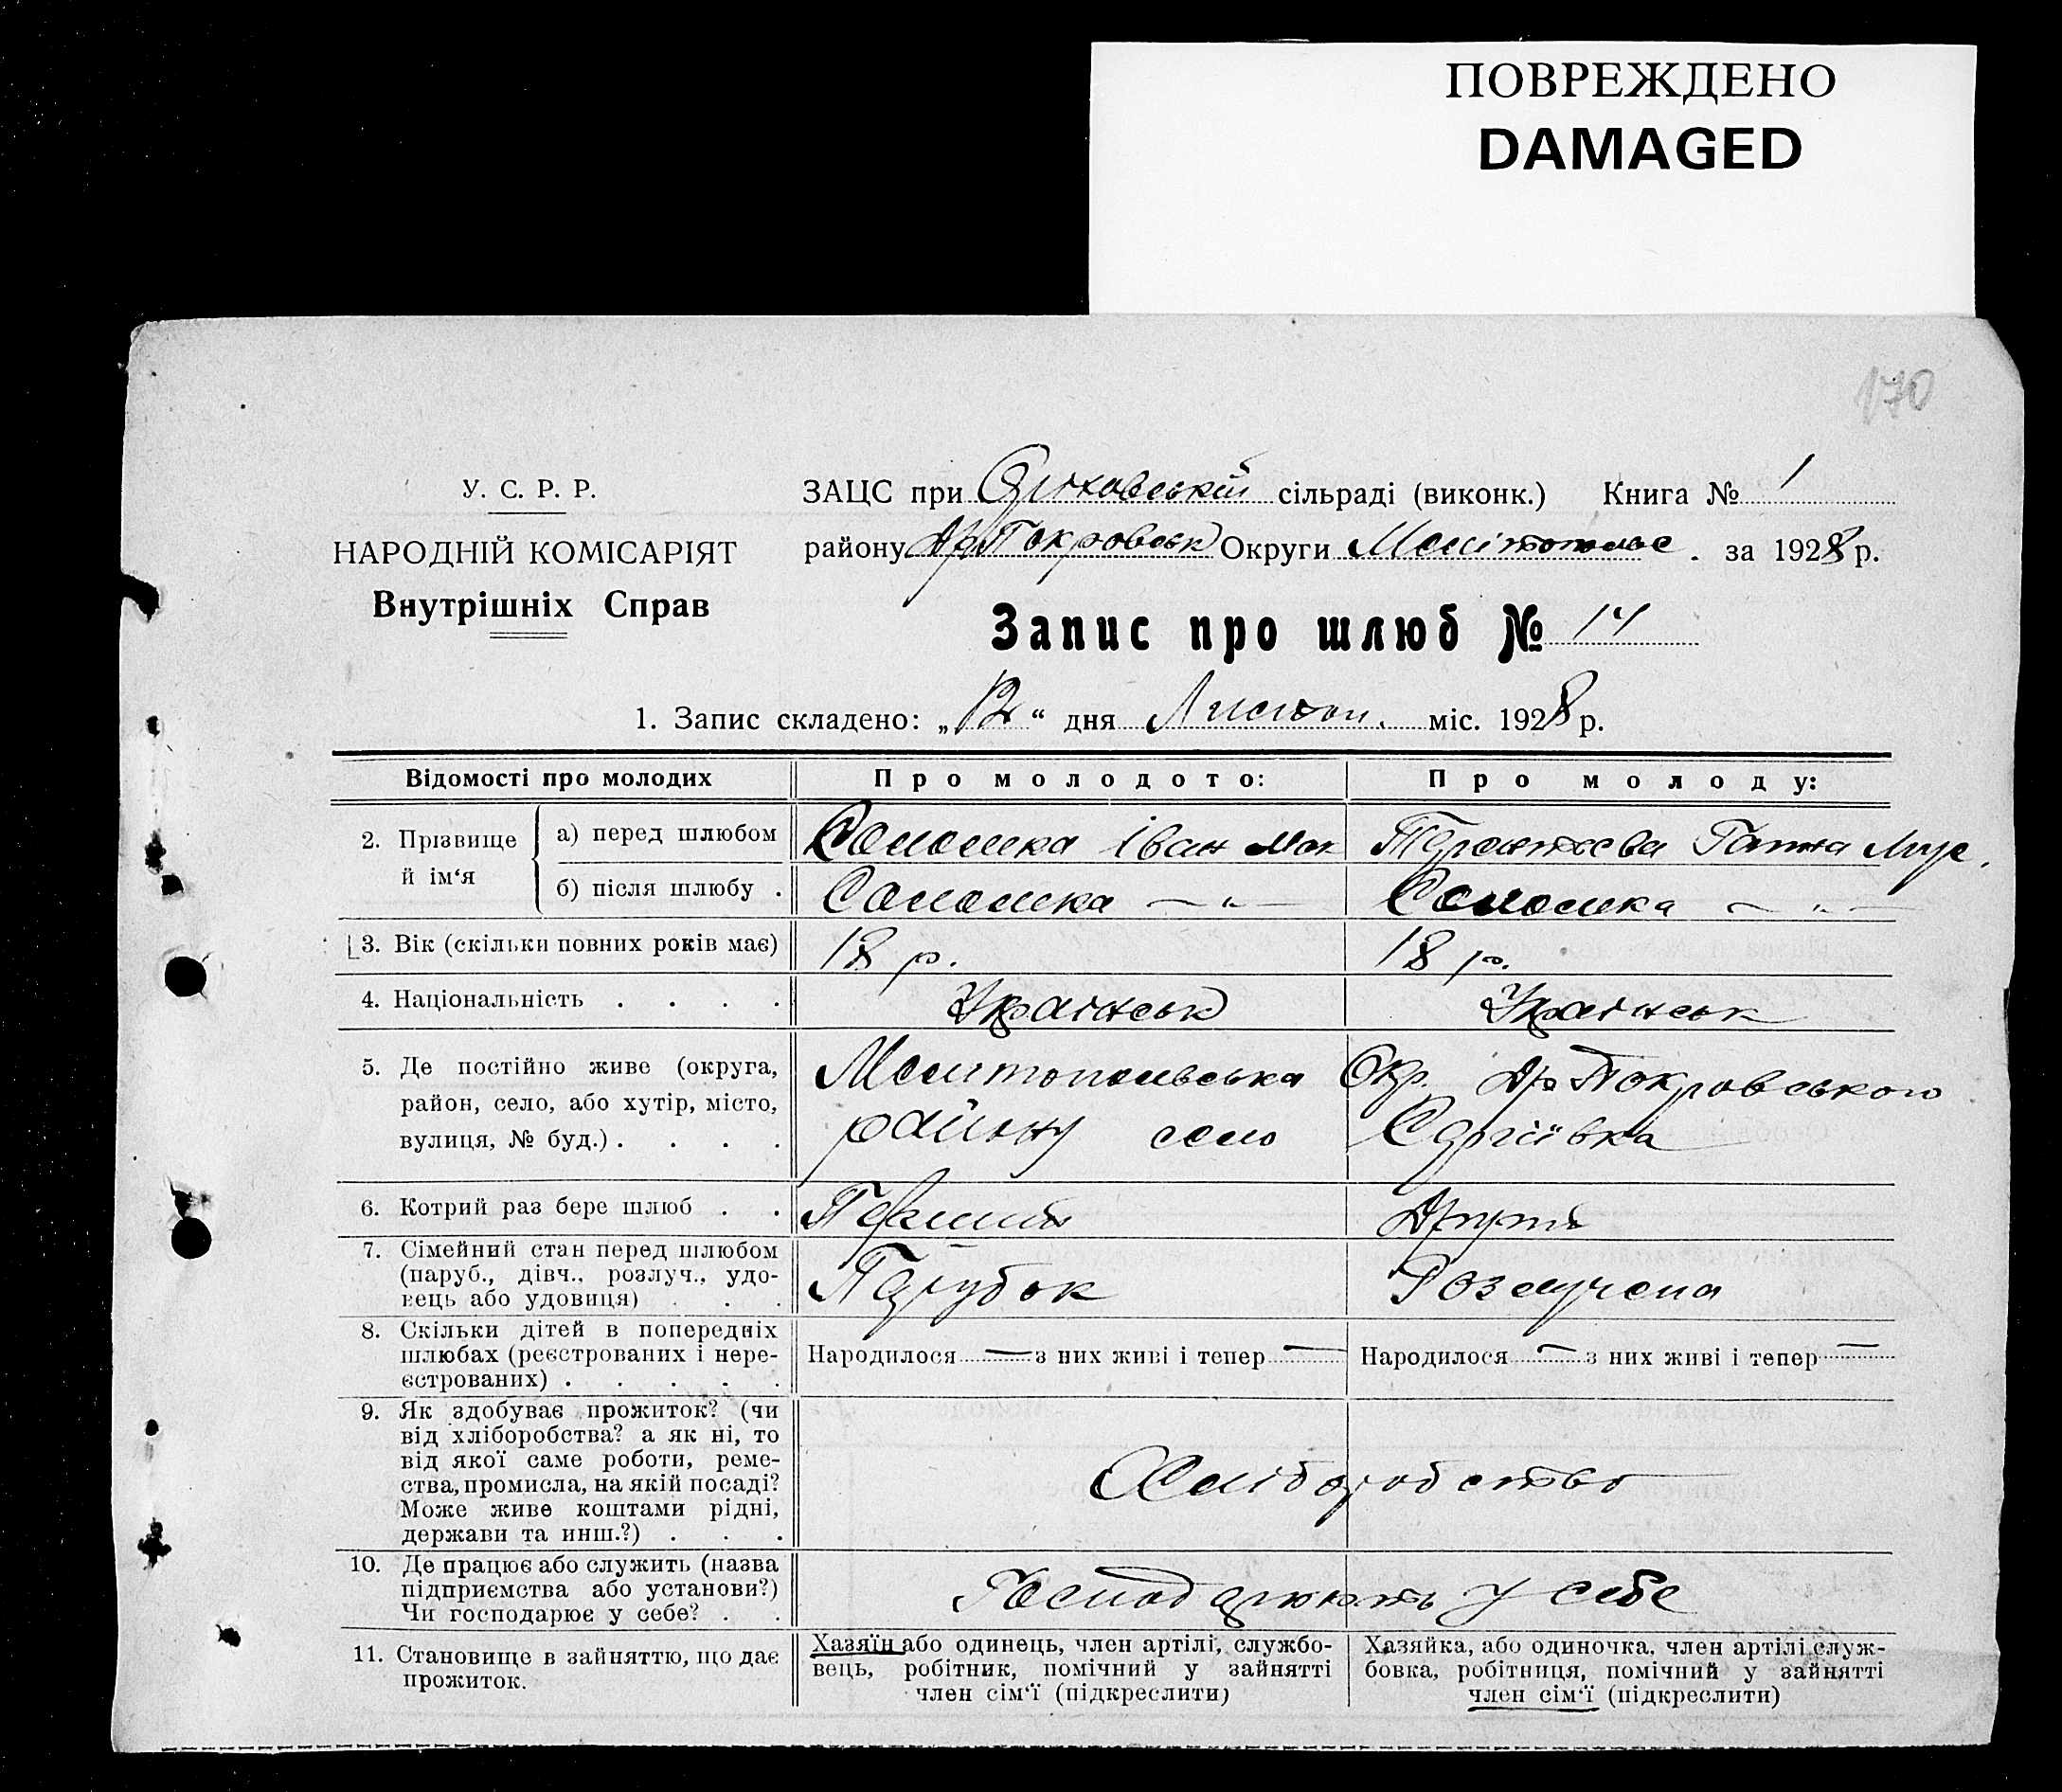 ПОВРЕЖДЕНО
DAMAGED
170
У. С. Р. Р.
НАРОДНІЙ КОМІСАРІЯТ
Внутрішніх Справ
ЗАЦС при сільраді (виконк.) Книга № 1
району Округи за 1928 р.
Запис про шлюб № 14
1. Запис складено: „12“ дня Листоп. міс. 1928 р.
Відомості про молодих
Про молодого:
Про молоду:
2. Прізвище й ім‘я
а) перед шлюбом
Соломка Іван Мак
Ганна
б) після шлюбу .
Соломка — „ —
Соломка — „ —
3. Вік (скільки повних років має)
18 р.
18 р.
4. Національність . . . .
Українськ
Українськ
5. Де постійно живе (округа,
район, село, або хутір, місто,
вулиця, № буд.) . . . .
Мелитопольська Окр. Др Покровського
району село Сергіївка
6. Котрий раз бере шлюб . .
Перший
Другий
7. Сімейний стан перед шлюбом
(паруб., дівч., розлуч., удо-
вець або удовиця) . . .
Парубок
Розлучена
8. Скільки дітей в попередніх
шлюбах (реєстрованих і нере-
єстрованих) . . . . .
Народилося — з них живі і тепер —
Народилося — з них живі і тепер —
9. Як здобуває прожиток? (чи
від хліборобства? а як ні, то
від якої саме роботи, реме-
ства, промисла, на якій посаді?
Може живе коштами рідні,
держави та инш.?) . . .
Хліборобство
10. Де працює або служить (назва
підприємства або установи?)
Чи господарює у себе? . .
Господарюють у себе
11. Становище в зайняттю, що дає
прожиток.
Хазяїн або одинець, член артілі, службо-
вець, робітник, помічний у зайнятті
член сім‘ї (підкреслити)
Хазяйка, або одиночка, член артілі служ-
бовка, робітниця, помічний у зайнятті
член сім‘ї (підкреслити)